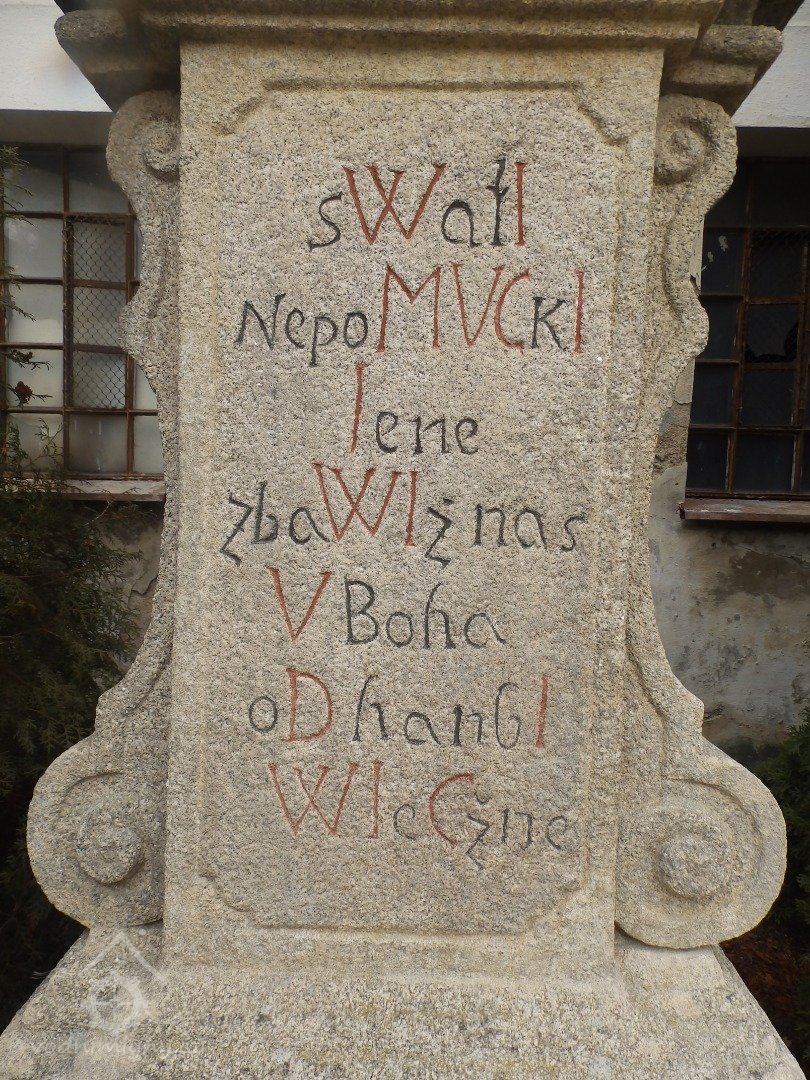 sWatI
NepoMVCkI
Iene
zbaWIž nas
V Boha
oD hanbI
WIeCžne